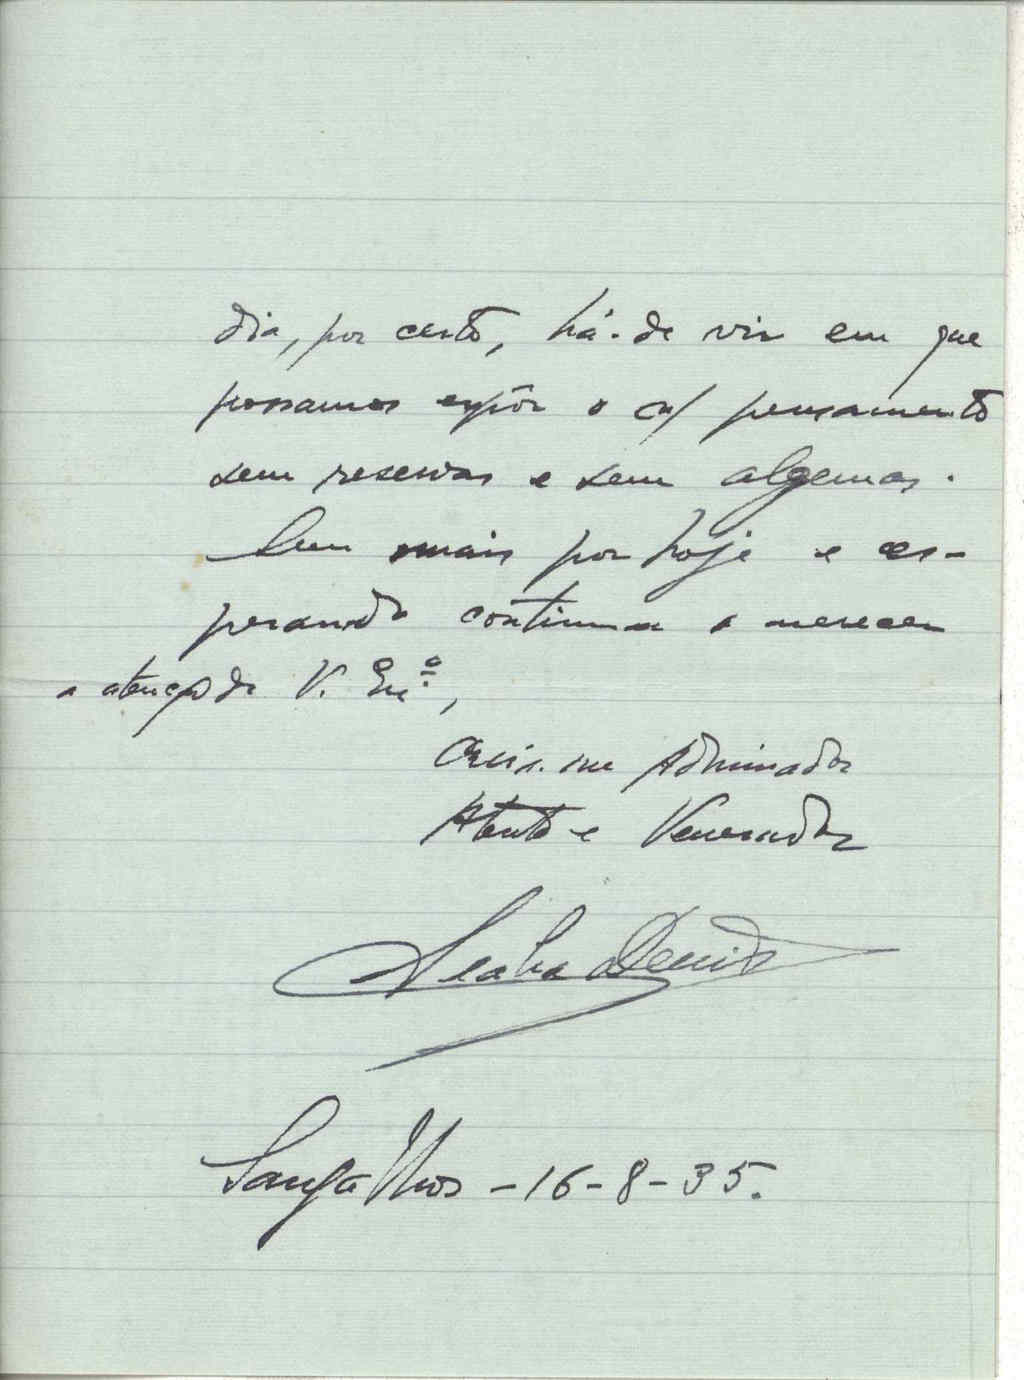 dia, por certo, há-de vir em que
possamos expôr o n/ pensamento
sem reservas e sem algemas.
Sem mais por hoje e es-
perando continuar a merecer
a atenção de V. Exª,
Admirador
Atento e Venerador
Seabra Denis
Sangalhos - 16-8-35.